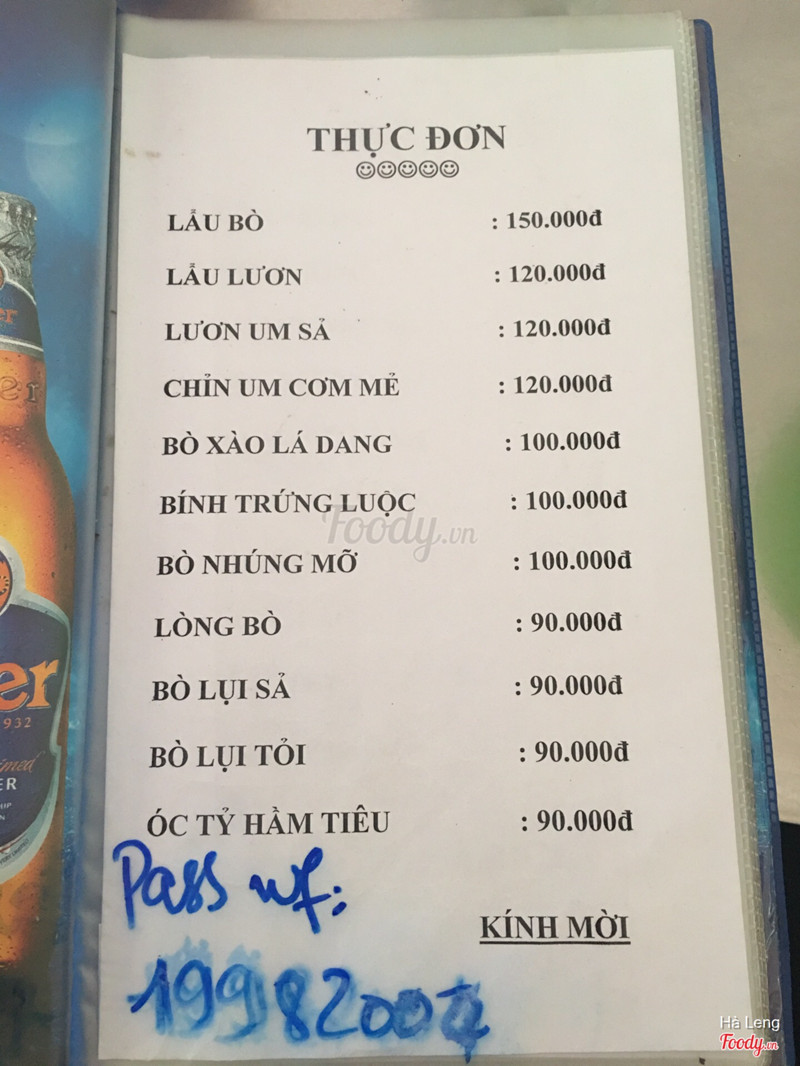 THỰC ĐƠN
☺☺☺☺☺
LẨU BÒ : 150.000đ
LẨU LƯƠN : 120.000đ
LƯƠN UM SẢ : 120.000đ
CHỈN UM CƠM MẺ : 120.000đ
BÒ XÀO LÁ DANG : 100.000đ
BÍNH TRỨNG LUỘC : 100.000đ
BÒ NHÚNG MỠ : 100.000đ
LÒNG BÒ : 90.000đ
BÒ LỤI SẢ : 90.000đ
BÒ LỤI TỎI : 90.000đ
ÓC TỶ HẦM TIÊU : 90.000đ
Pass wf:
KÍNH MỜI
Foody.vn
er
er
1932
Hà Leng
Foody.vn